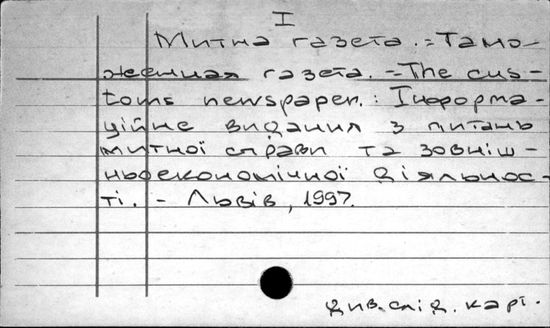 I
Митна газета. = Тамо-
женная газета. = The cus-
toms newspaper. : Інформа-
ційне видання з питань
митної справи та зовніш-
ньоекономічної діяльнос-
ті. - Львів, 1997.
див. слід. карт.